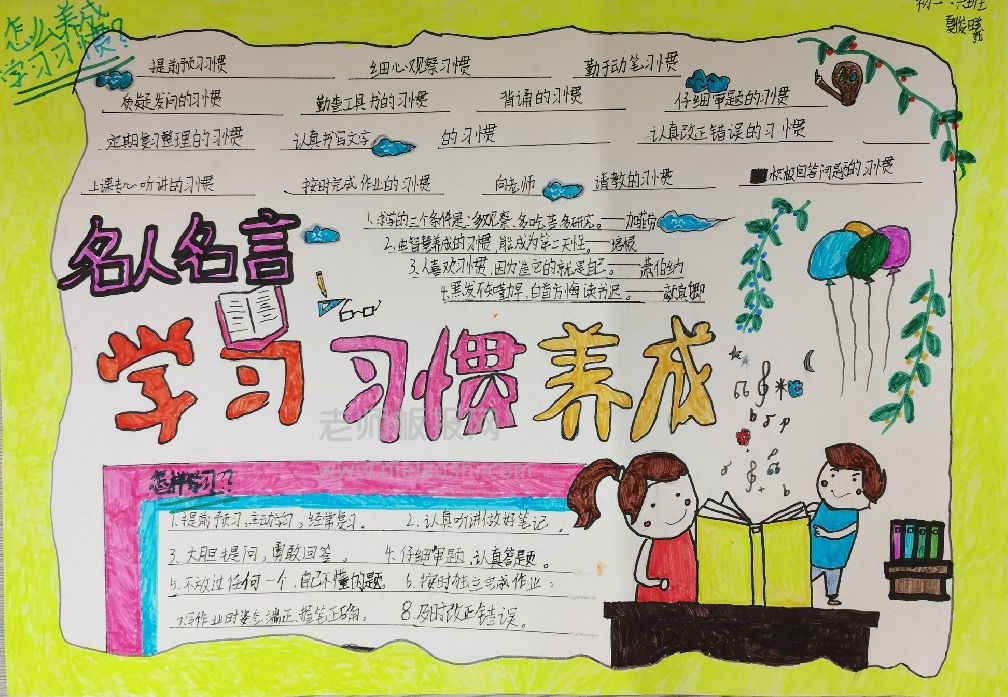 怎么养成
学习习惯?
提前预习习惯 细心观察习惯 勤于动笔习惯
质疑发问的习惯 勤查工具书的习惯 背诵的习惯 仔细审题的习惯
定期复习整理的习惯 认真书写文字 的习惯 认真改正错误的习惯
上课专心听讲的习惯 按时完成作业的习惯 向老师 请教的习惯 积极回答问题的习惯
名人名言
1.求学的三个条件是:多观察、多吃苦、多研究。——加菲劳
2.由智慧养成的习惯,能成为第二天性。——培根
3.人喜欢习惯,因为造它的就是自己。——萧伯纳
4.黑发不知勤学早,白首方悔读书迟。——颜真卿
学习习惯养成
老师板报网
怎样学习??
1.提前预习,主动学习,经常复习。 2.认真听讲做好笔记。
3.大胆提问,勇敢回答。 4.仔细审题,认真答题。
5.不放过任何一个,自己不懂的题 6.按时独立完成作业;
7.写作业时姿态端正、握笔正确。 8.及时改正错误。